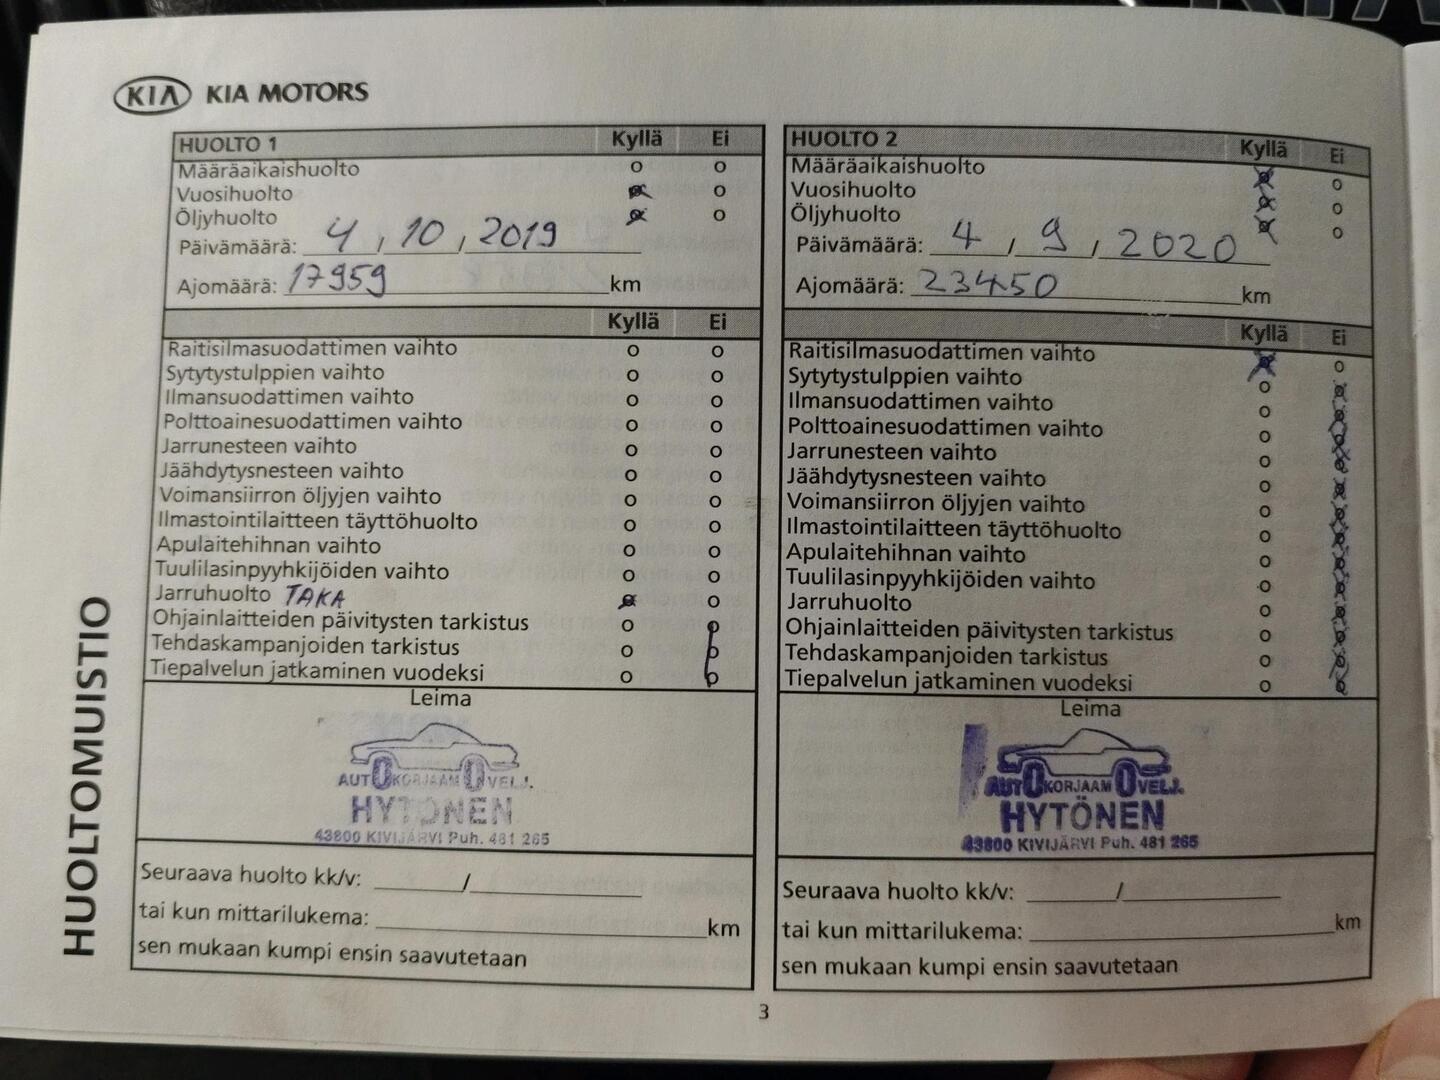 KIA
KIA MOTORS
HUOLTOMUISTIO
HUOLTO 1 Kyllä Ei
Määräaikaishuolto o o
Vuosihuolto x o
Öljyhuolto x o
Päivämäärä: 4, 10, 2019
Ajomäärä: 17959 km
Kyllä Ei
Raitisilmasuodattimen vaihto o o
Sytytystulppien vaihto o o
Ilmansuodattimen vaihto o o
Polttoainesuodattimen vaihto o o
Jarrunesteen vaihto o o
Jäähdytysnesteen vaihto o o
Voimansiirron öljyjen vaihto o o
Ilmastointilaitteen täyttöhuolto o o
Apulaitehihnan vaihto o o
Tuulilasinpyyhkijöiden vaihto o o
Jarruhuolto TAKA x o
Ohjainlaitteiden päivitysten tarkistus o o
Tehdaskampanjoiden tarkistus o o
Tiepalvelun jatkaminen vuodeksi o o
Leima
AUTOKORJAAMO VELJ.
HYTÖNEN
43800 KIVIJÄRVI Puh. 481 265
Seuraava huolto kk/v: /
tai kun mittarilukema: km
sen mukaan kumpi ensin saavutetaan
HUOLTO 2 Kyllä Ei
Määräaikaishuolto x o
Vuosihuolto x o
Öljyhuolto x o
Päivämäärä: 4, 9, 2020
Ajomäärä: 23450 km
Kyllä Ei
Raitisilmasuodattimen vaihto x o
Sytytystulppien vaihto o x
Ilmansuodattimen vaihto o x
Polttoainesuodattimen vaihto o x
Jarrunesteen vaihto o x
Jäähdytysnesteen vaihto o x
Voimansiirron öljyjen vaihto o x
Ilmastointilaitteen täyttöhuolto o x
Apulaitehihnan vaihto o x
Tuulilasinpyyhkijöiden vaihto o x
Jarruhuolto o x
Ohjainlaitteiden päivitysten tarkistus o x
Tehdaskampanjoiden tarkistus o x
Tiepalvelun jatkaminen vuodeksi o x
Leima
AUTOKORJAAMO VELJ.
HYTÖNEN
43800 KIVIJÄRVI Puh. 481 265
Seuraava huolto kk/v: /
tai kun mittarilukema: km
sen mukaan kumpi ensin saavutetaan
3